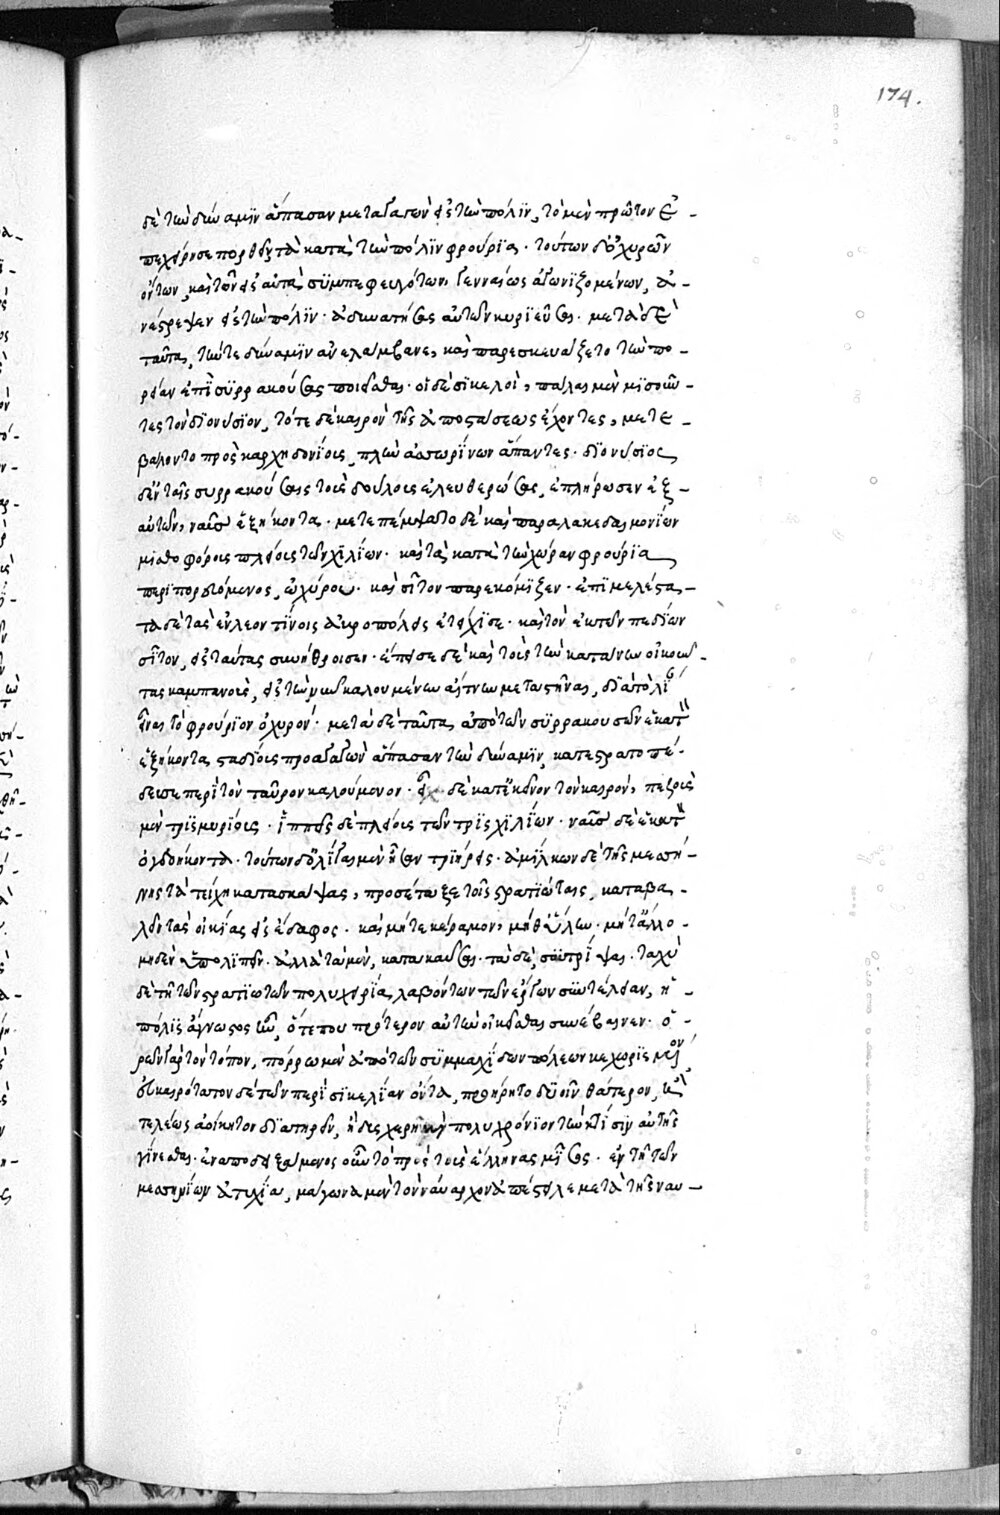 δὲ τὴν δύναμϊν ἅπασαν μεταγαγὼν εἰς τὴν πόλϊν, τὸ μὲν πρῶτον ἐ-
πεχείρησε πορθεῖν τὰ κατὰ τὴν πόλϊν φρούρϊα· τούτων δὲ ὀχυρῶν
ὄντων, καὶ τῶν εἰς αὐτὰ συμπεφευγότων, γενναίως ἀγωνϊζομένων, ἀ-
νέστρεψεν εἰς τὴν πόλϊν· ἀδυνατήσας αὐτῶν κυρϊεῦσαι. μετὰ δὲ
ταῦτα, τήν τε δύναμϊν ἀνελάμβανε, καὶ παρεσκευάζετο τὴν πο-
ρείαν ἐπὶ συρρακούσας ποιεῖσθαι. οἱ δὲ σϊκελοὶ, πάλαι μὲν μϊσοῦν-
τες τὸν δϊονύσϊον, τότε δὲ καιρὸν τῆς ἀποστάσεως ἔχοντες, μετε-
βάλοντο πρὸς καρχηδονΐους, πλὴν ἀσσωρίνων ἅπαντες. δϊονύσϊος
δ' ἐν ταῖς συρρακούσαις τοὺς δούλους ἐλευθερώσας, ἐπλήρωσεν ἐξ-
αὐτῶν, ναῦς ἑξήκοντα. μετεπέμψατο δὲ καὶ παρὰ λακεδαιμονίων
μισθοφόρους πλείους τῶν χϊλίων. καὶ τὰ κατὰ τὴν χώραν φρούρϊα
περϊπορευόμενος, ὠχύρου. καὶ σῖτον παρεκόμϊζεν. ἐπϊμελέστα-
τα δὲ τὰς ἐν λεοντίνοις ἀκροπόλεις ἐτείχϊσε. καὶ τὸν ἐκ τῶν πεδίων
σῖτον, εἰς ταύτας συνήθροισεν. ἔπεισε δὲ καὶ τοὺς τὴν κατάνην οἰκοῦν-
τας καμπανοὺς, εἰς τὴν νῦν καλουμένην αἴτνην μεταστῆναι, διὰ τὸ λί
εἶναι τὸ φρούρϊον ὀχυρόν. μετὰ δὲ ταῦτα ἀπὸ τῶν συρρακουσῶν ἑκατ
ἑξήκοντα σταδίους προαγαγὼν ἅπασαν τὴν δύναμϊν, κατεστρατοπέ-
δευσε περὶ τὸν ταῦρον καλούμενον. εἶχε δὲ κατ' ἐκεῖνον τὸν καιρόν, πεζοὺς
μὲν τρϊσμυρίους. ἱππεῖς δὲ πλείους τῶν τρϊσχϊλίων. ναῦς δὲ ἑκατ
ὀγδοήκοντα. τούτων δ' ὀλίγαι μὲν ἦσαν τριήρεις. ἀμίλκων δὲ τῆς μεσσή-
νης τὰ τείχη κατασκάψας, προσέταξε τοῖς στρατϊώταις, καταβα-
λεῖν τὰς οἰκίας εἰς ἔδαφος. καὶ μήτε κέραμον, μήθ' ὕλην. μήτ' ἄλλο-
μηδὲν ὑπολϊπεῖν. ἀλλὰ τὰ μὲν, κατακαῦσαι. τὰ δὲ, συντρίψαι. ταχὺ
δὲ τῇ τῶν στρατϊωτῶν πολυχειρίᾳ, λαβόντων τῶν ἔργων συντέλειαν, ἡ-
πόλϊς ἄγνωστος ἦν, ὅτε που πρότερον αὐτὴν οἰκεῖσθαι συνέβαινεν. ὁ-
ρῶν γὰρ τὸν τόπον, πόρρω μὲν ἀπὸ τῶν συμμαχΐδων πόλεων κεχωρϊσμένον,
εὐκαιρότατον δὲ τῶν περὶ σϊκελίαν ὄντα, προῄρητο δυοῖν θάτερον, ἢ
τελέως ἀοίκητον δϊατηρεῖν, ἢ δυσχερῆ καὶ πολυχρόνϊον τὴν κτίσϊν αὐτῆς
γίνεσθαι. ἐναποδειξάμενος οὖν τὸ πρὸς τοὺς ἕλληνας μῖσος. ἐν τῇ τῶν
μεσσηνίων ἀτυχίᾳ, μάγωνα μὲν τὸν ναύαρχον ἀπέστειλε μετὰ τῆς ναυ-
174.